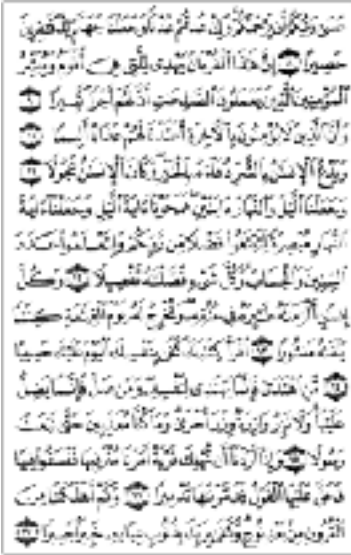 عَسَىٰ رَبُّكُمْ أَن يَرْحَمَكُمْ وَإِنْ عُدتُّمْ عُدْنَا وَجَعَلْنَا جَهَنَّمَ لِلْكَافِرِينَ
حَصِيرًا ٨ إِنَّ هَٰذَا الْقُرْآنَ يَهْدِي لِلَّتِي هِيَ أَقْوَمُ وَيُبَشِّرُ
الْمُؤْمِنِينَ الَّذِينَ يَعْمَلُونَ الصَّالِحَاتِ أَنَّ لَهُمْ أَجْرًا كَبِيرًا ٩
وَأَنَّ الَّذِينَ لَا يُؤْمِنُونَ بِالْآخِرَةِ أَعْتَدْنَا لَهُمْ عَذَابًا أَلِيمًا ١٠
وَيَدْعُ الْإِنسَانُ بِالشَّرِّ دُعَاءَهُ بِالْخَيْرِ وَكَانَ الْإِنسَانُ عَجُولًا ١١
وَجَعَلْنَا اللَّيْلَ وَالنَّهَارَ آيَتَيْنِ فَمَحَوْنَا آيَةَ اللَّيْلِ وَجَعَلْنَا آيَةَ
النَّهَارِ مُبْصِرَةً لِّتَبْتَغُوا فَضْلًا مِّن رَّبِّكُمْ وَلِتَعْلَمُوا عَدَدَ
السِّنِينَ وَالْحِسَابَ وَكُلَّ شَيْءٍ فَصَّلْنَاهُ تَفْصِيلًا ١٢ وَكُلَّ
إِنسَانٍ أَلْزَمْنَاهُ طَائِرَهُ فِي عُنُقِهِ وَنُخْرِجُ لَهُ يَوْمَ الْقِيَامَةِ كِتَابًا
يَلْقَاهُ مَنشُورًا ١٣ اقْرَأْ كِتَابَكَ كَفَىٰ بِنَفْسِكَ الْيَوْمَ عَلَيْكَ حَسِيبًا
١٤ مَّنِ اهْتَدَىٰ فَإِنَّمَا يَهْتَدِي لِنَفْسِهِ وَمَن ضَلَّ فَإِنَّمَا يَضِلُّ
عَلَيْهَا وَلَا تَزِرُ وَازِرَةٌ وِزْرَ أُخْرَىٰ وَمَا كُنَّا مُعَذِّبِينَ حَتَّىٰ نَبْعَثَ
رَسُولًا ١٥ وَإِذَا أَرَدْنَا أَن نُّهْلِكَ قَرْيَةً أَمَرْنَا مُتْرَفِيهَا فَفَسَقُوا فِيهَا
فَحَقَّ عَلَيْهَا الْقَوْلُ فَدَمَّرْنَاهَا تَدْمِيرًا ١٦ وَكَمْ أَهْلَكْنَا مِنَ
الْقُرُونِ مِن بَعْدِ نُوحٍ وَكَفَىٰ بِرَبِّكَ بِذُنُوبِ عِبَادِهِ خَبِيرًا بَصِيرًا ١٧